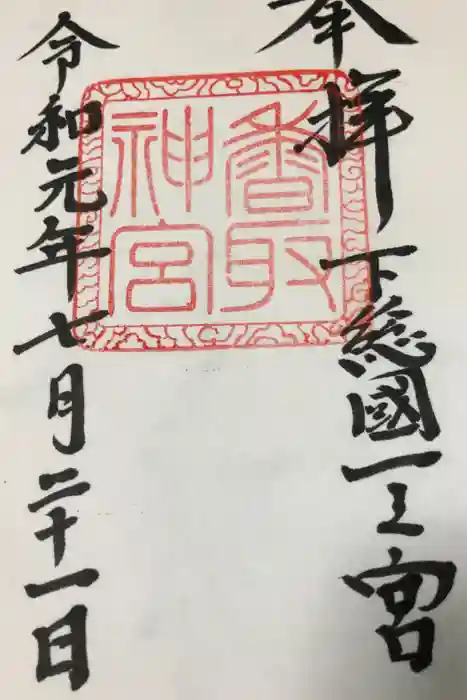 奉拝 下総國一之宮
香取
神宮
令和元年七月二十一日